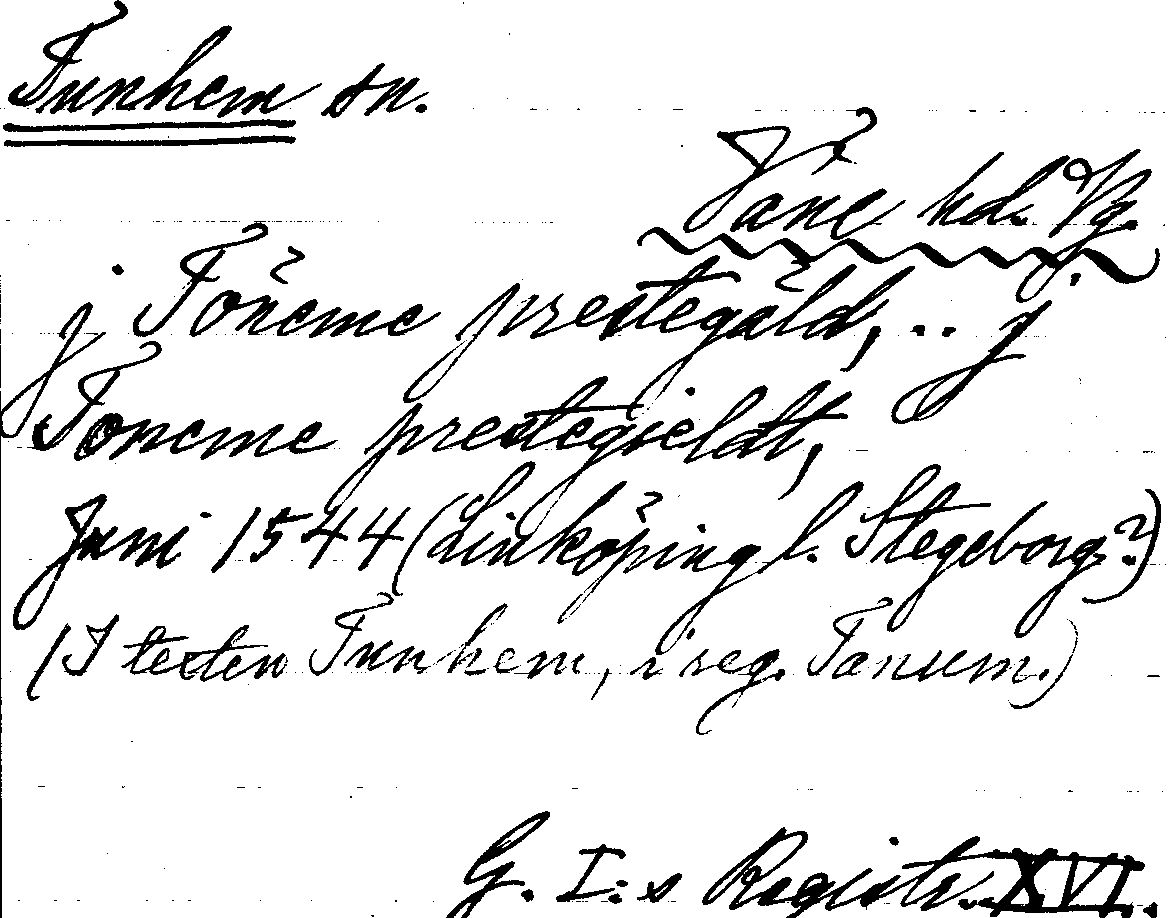 Tunhem sn.
Väne hd. Vg.
j Töneme prestegäld, .. j
Toneme prestegieldt,
Juni 1544 (Linköping l. Stegeborg?)
(I texten Tunhem, i reg. Tanum.)
G. I:s Registr. XVI.